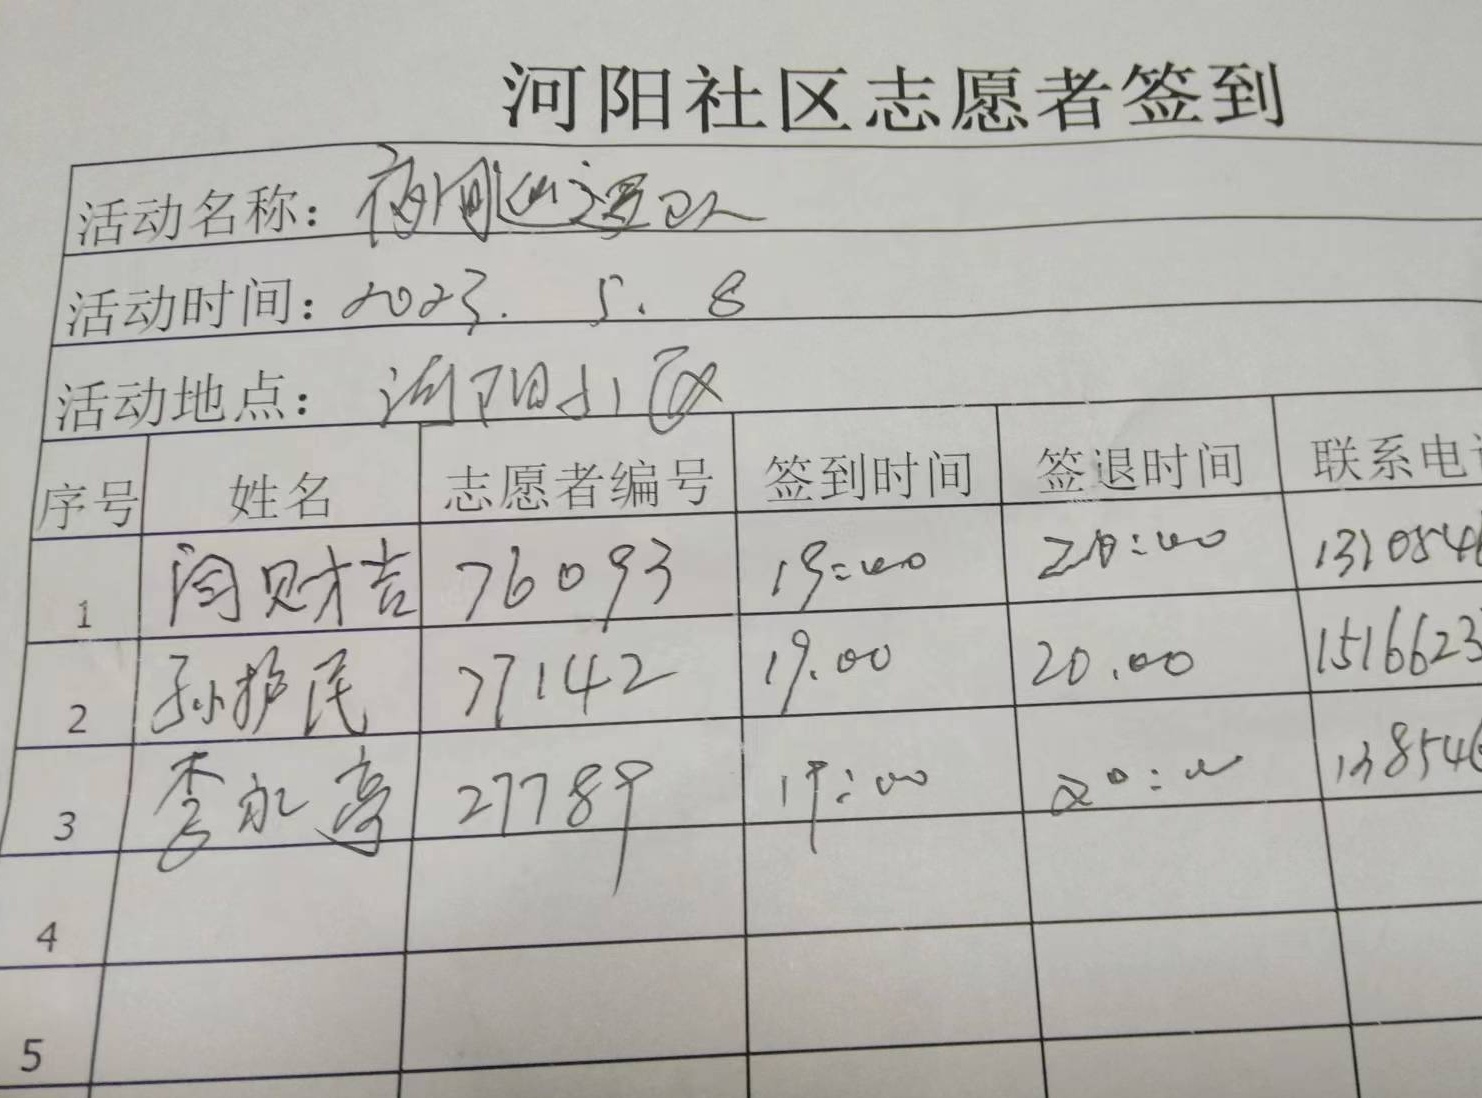 河阳社区志愿者签到
活动名称：夜间巡逻队
活动时间：2023. 5. 8
活动地点：河阳小区
序号 姓名 志愿者编号 签到时间 签退时间 联系电
1 闫财吉 76093 19:00 20:00 1310546
2 孙护民 77142 19.00 20.00 1516623
3 李永亭 27789 19:00 20:00 138546
4
5